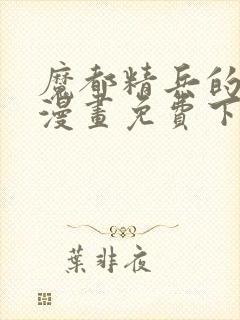 魔都精兵的
漫畫免費下
葉非夜